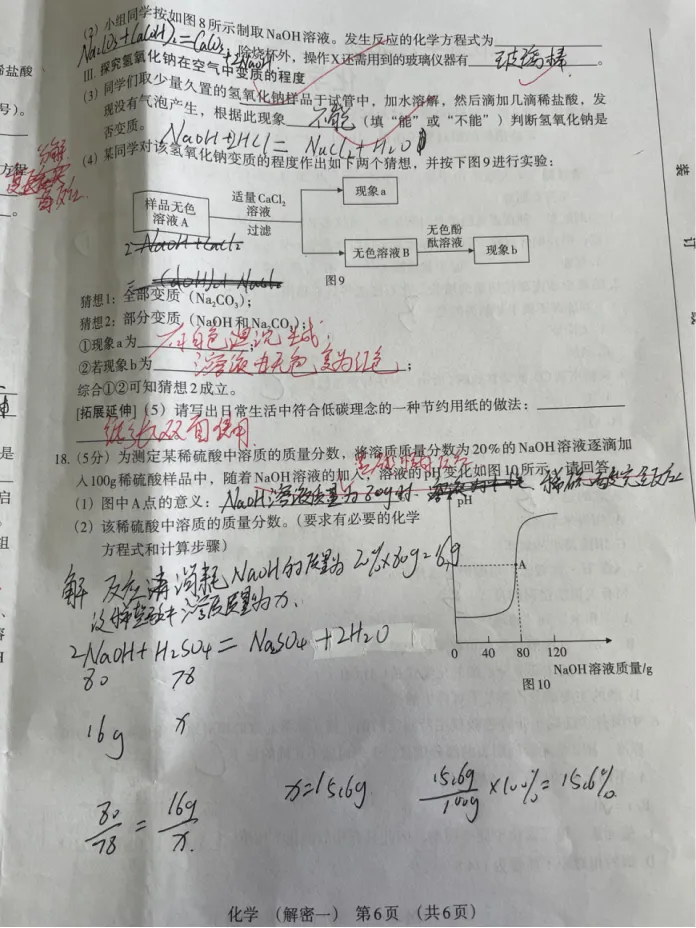 (2) 小组同学按如图8所示制取NaOH溶液。发生反应的化学方程式为
Na₂CO₃+Ca(OH)₂=CaCO₃+2NaOH
除烧杯外，操作X还需用到的玻璃仪器有 玻璃棒 。
III. 探究氢氧化钠在空气中变质的程度
(3) 同学们取少量久置的氢氧化钠样品于试管中，加水溶解，然后滴加几滴稀盐酸，发
现没有气泡产生，根据此现象 不能 (填“能”或“不能”) 判断氢氧化钠是
否变质。
NaOH+HCl=NaCl+H₂O
(4) 某同学对该氢氧化钠变质的程度作出如下两个猜想，并按下图9进行实验：
样品无色
溶液A
适量CaCl₂
溶液
过滤
现象a
无色溶液B
无色酚
酞溶液
现象b
图9
猜想1：全部变质 (Na₂CO₃)；
猜想2：部分变质 (NaOH和Na₂CO₃)；
①现象a为 有白色沉淀生成；
②若现象b为 溶液由无色变为红色 ；
综合①②可知猜想2成立。
[拓展延伸] (5) 请写出日常生活中符合低碳理念的一种节约用纸的做法：
纸张双面使用
18. (5分) 为测定某稀硫酸中溶质的质量分数，将溶质质量分数为20%的NaOH溶液逐滴加
入100g稀硫酸样品中，随着NaOH溶液的加入，溶液的pH变化如图10所示，请回答：
(1) 图中A点的意义： NaOH溶液质量为80g时
(2) 该稀硫酸中溶质的质量分数。(要求有必要的化学
方程式和计算步骤)
解 反应消耗NaOH的质量为
溶质质量为x.
2NaOH+H₂SO₄=Na₂SO₄+2H₂O
80 78
16g x
80/78 = 16g/x
x=15.6g
15.6g/100g ×100%=15.6%
pH
A
0 40 80 120
NaOH溶液质量/g
图10
化学 (解密一) 第6页 (共6页)
盐酸
号)。
装
订
是
启
组